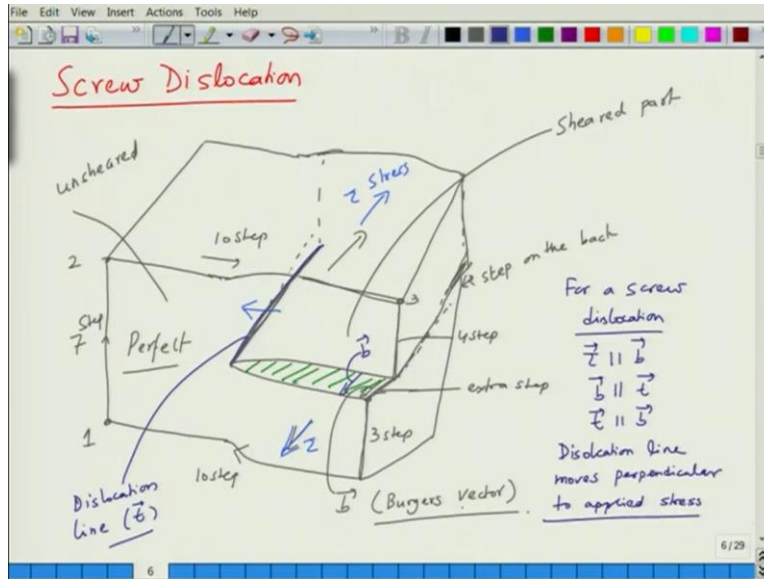 File Edit View Insert Actions Tools Help
B I
Screw Dislocation
unsheared
Sheared part
τ stress
10 step
step on the back
2
3
7 step
Perfect
b⃗
4 step
extra step
3 step
1
10 step
τ
Dislocation
line (t⃗)
b⃗ (Burgers vector)
For a screw
dislocation
τ⃗ || b⃗
b⃗ || t⃗
t⃗ || b⃗
Dislcation line
moves perpendicular
to applied stress
6/29
6